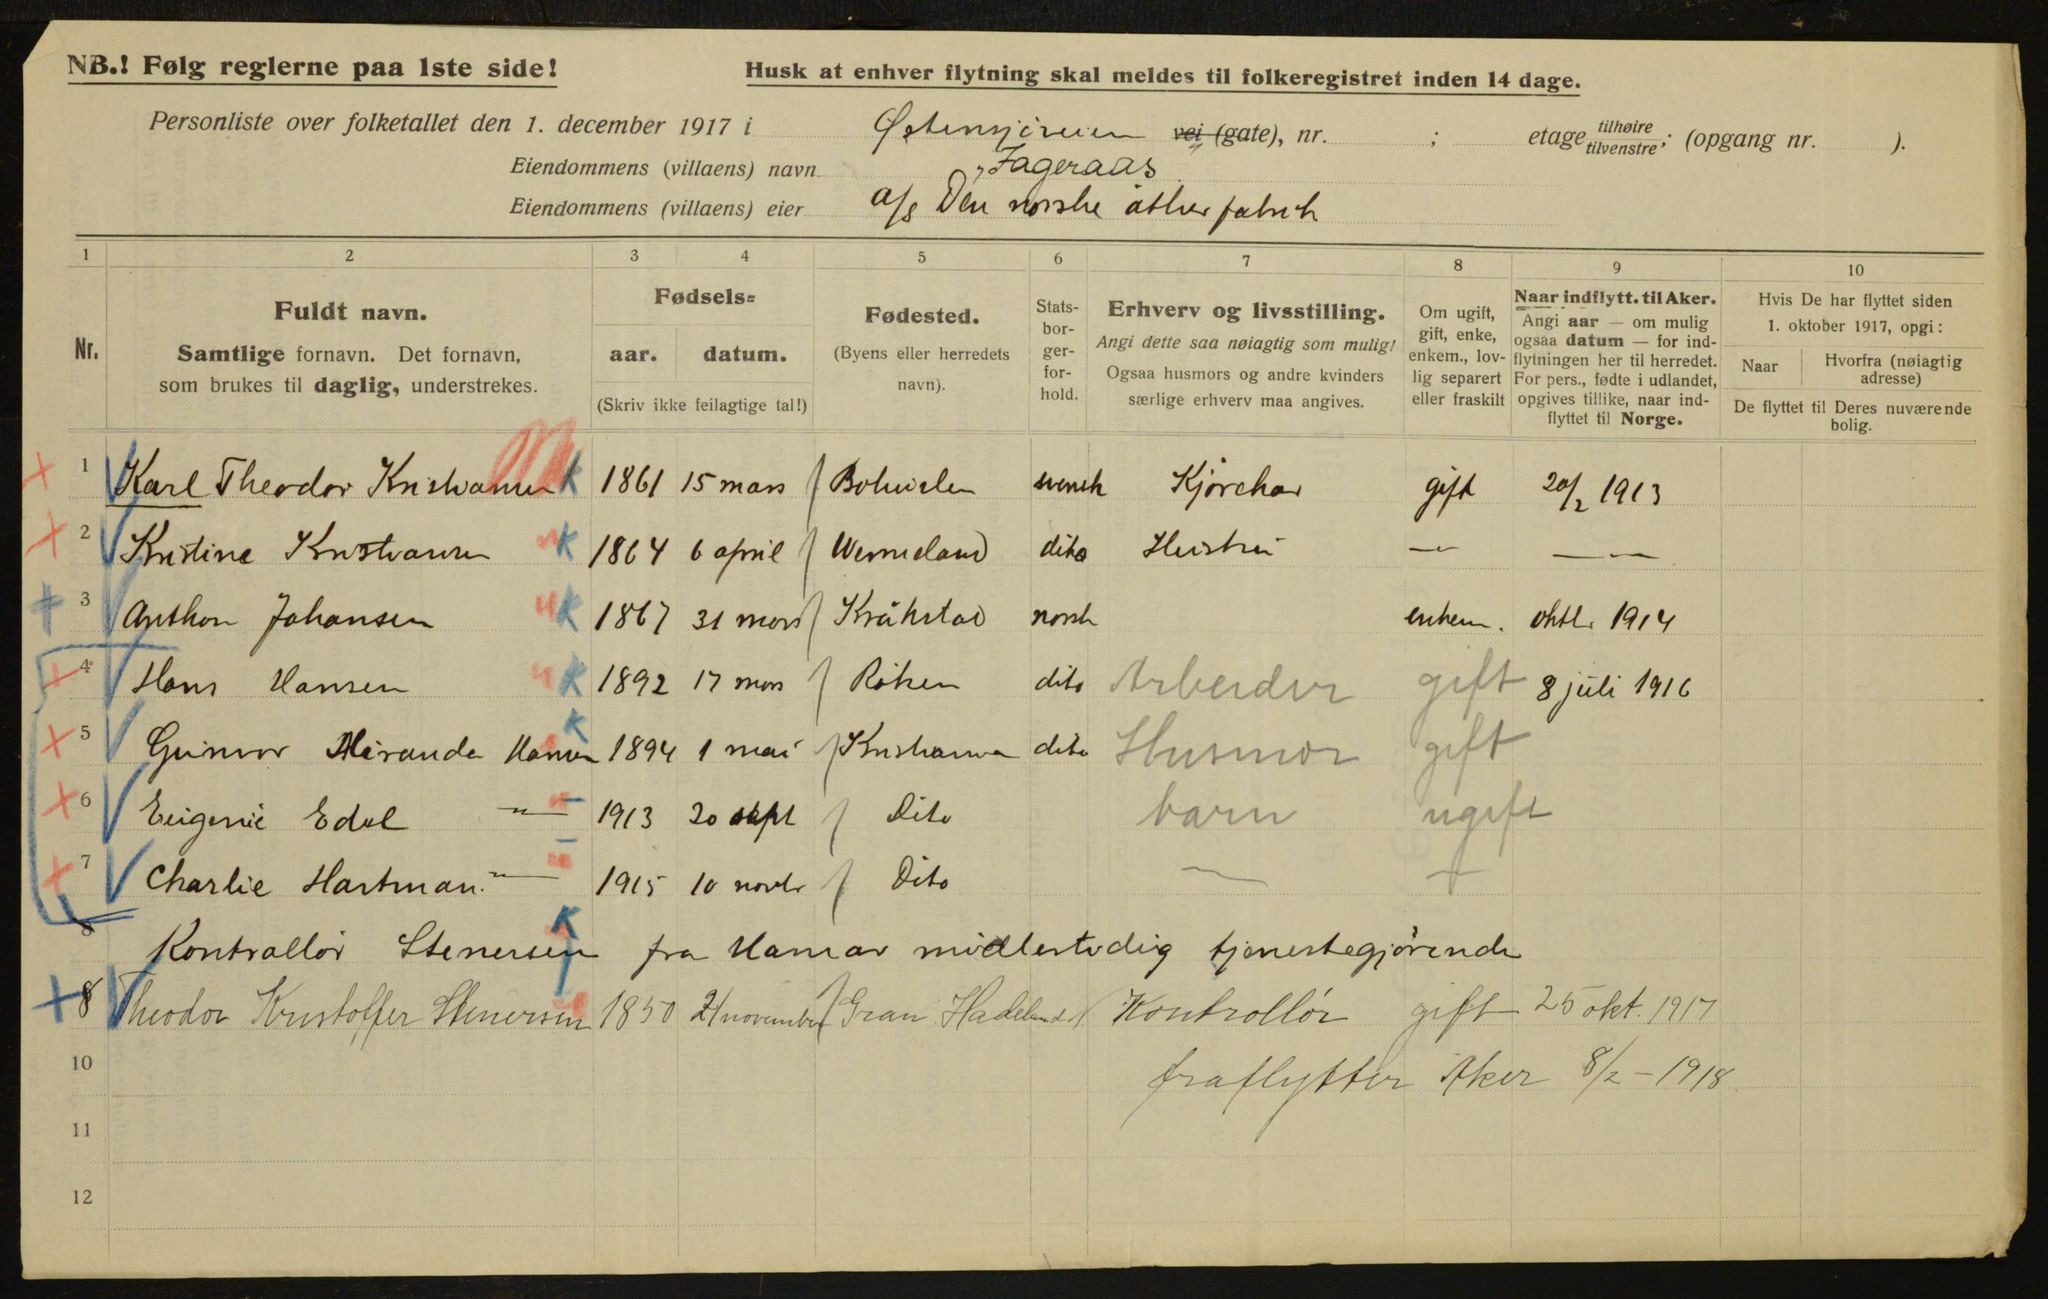 NB.! Følg reglerne paa 1ste side!
Husk at enhver flytning skal meldes til folkeregistret inden 14 dage.
Personliste over folketallet den 1. december 1917 i Østensjøveien vei (gate), nr. ; etage tilhøire tilvenstre; (opgang nr. ).
Eiendommens (villaens) navn „Fageraas
Eiendommens (villaens) eier a/s Den norske ætherfabrik
1 2 3 4 5 6 7 8 9 10
Nr.
Fuldt navn.
Samtlige fornavn. Det fornavn, som brukes til daglig, understrekes.
Fødsels=
aar. datum.
(Skriv ikke feilagtige tal!)
Fødested.
(Byens eller herredets navn).
Stats-bor-ger-for-hold.
Erhverv og livsstilling.
Angi dette saa nøiagtig som mulig!
Ogsaa husmors og andre kvinders særlige erhverv maa angives.
Om ugift, gift, enke, enkem., lov-lig separert eller fraskilt
Naar indflytt. til Aker.
Angi aar — om mulig ogsaa datum — for ind-flytningen her til herredet. For pers., fødte i udlandet, opgives tillike, naar ind-flyttet til Norge.
Hvis De har flyttet siden 1. oktober 1917, opgi:
Naar Hvorfra (nøiagtig adresse)
De flyttet til Deres nuværende bolig.
1 Karl Theodor Kristiansen K 1861 15 mars Bohuslen svensk Kjørekar gift 20/2 1913
2 Kristine Kristiansen K 1864 6 april Wermeland dito Hustru — — —
3 Anthon Johansen K 1867 31 mars Kråkstad norsk enkem. oktbr 1914
4 Hans Hansen K 1892 17 mars Röken dito Arbeider gift 8 juli 1916
5 Gunvor Miranda Hansen K 1894 1 mai Kristiania dito Husmor gift
6 Eugenie Edel —„— 1913 20 sept Dito barn ugift
7 Charlie Hartman —„— 1915 10 novbr Dito — —
8 Kontrollör Stenersen K fra Hamar midlertidig tjenestegjörende
8 Theodor Kristoffer Stenersen 1850 21 november Gran Hadeland Kontrollör gift 25 okt. 1917
10 fraflytter Aker 8/2 – 1918.
11
12